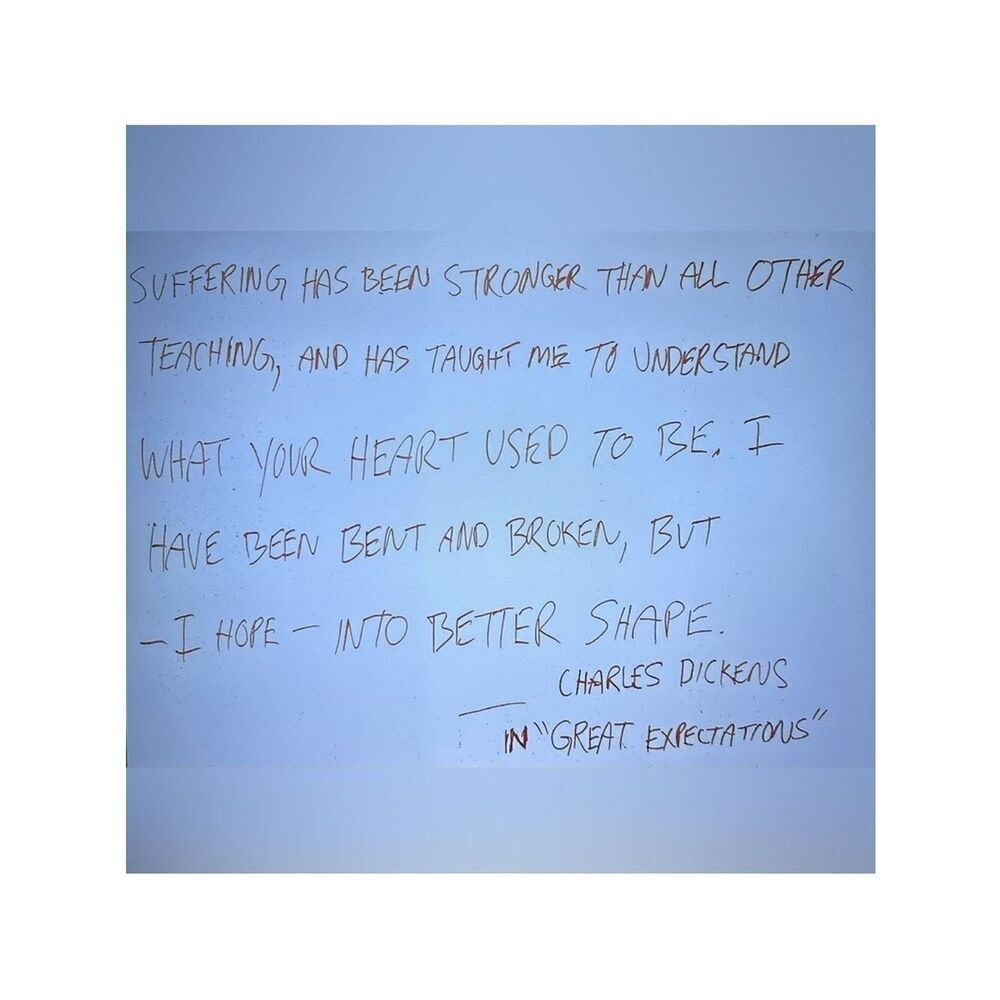 SUFFERING HAS BEEN STRONGER THAN ALL OTHER
TEACHING, AND HAS TAUGHT ME TO UNDERSTAND
WHAT YOUR HEART USED TO BE. I
HAVE BEEN BENT AND BROKEN, BUT
– I HOPE – INTO BETTER SHAPE.
CHARLES DICKENS
— IN "GREAT EXPECTATIONS"